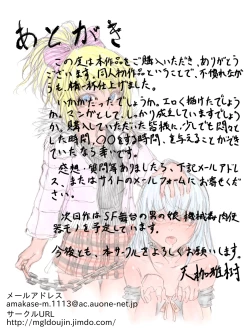 あとがき
この度は本作品をご購入いただき、ありがとう
ございます。同人初作品ということで、不慣れなが
らも、精一杯仕上げました。
いかがだったでしょうか。エロく描けたでしょう
か。マンガとして、しっかり成立していますでしょう
か。購入していただいた皆様に、少しでも悶々と
した時間、〇〇をする時間、を与えることができ
ていたなら幸いです。
感想・質問等ありましたら、下記メールアド
レス、またはサイトのメールフォームにお寄せくだ
さい。
次回作はSF舞台の男の娘、機械姦肉便
器モノを予定しています。
今後とも、本サークルをよろしくお願いします。
メールアドレス
amakase-m.1113@ac.auone-net.jp
サークルURL
http://mgldoujin.jimdo.com/